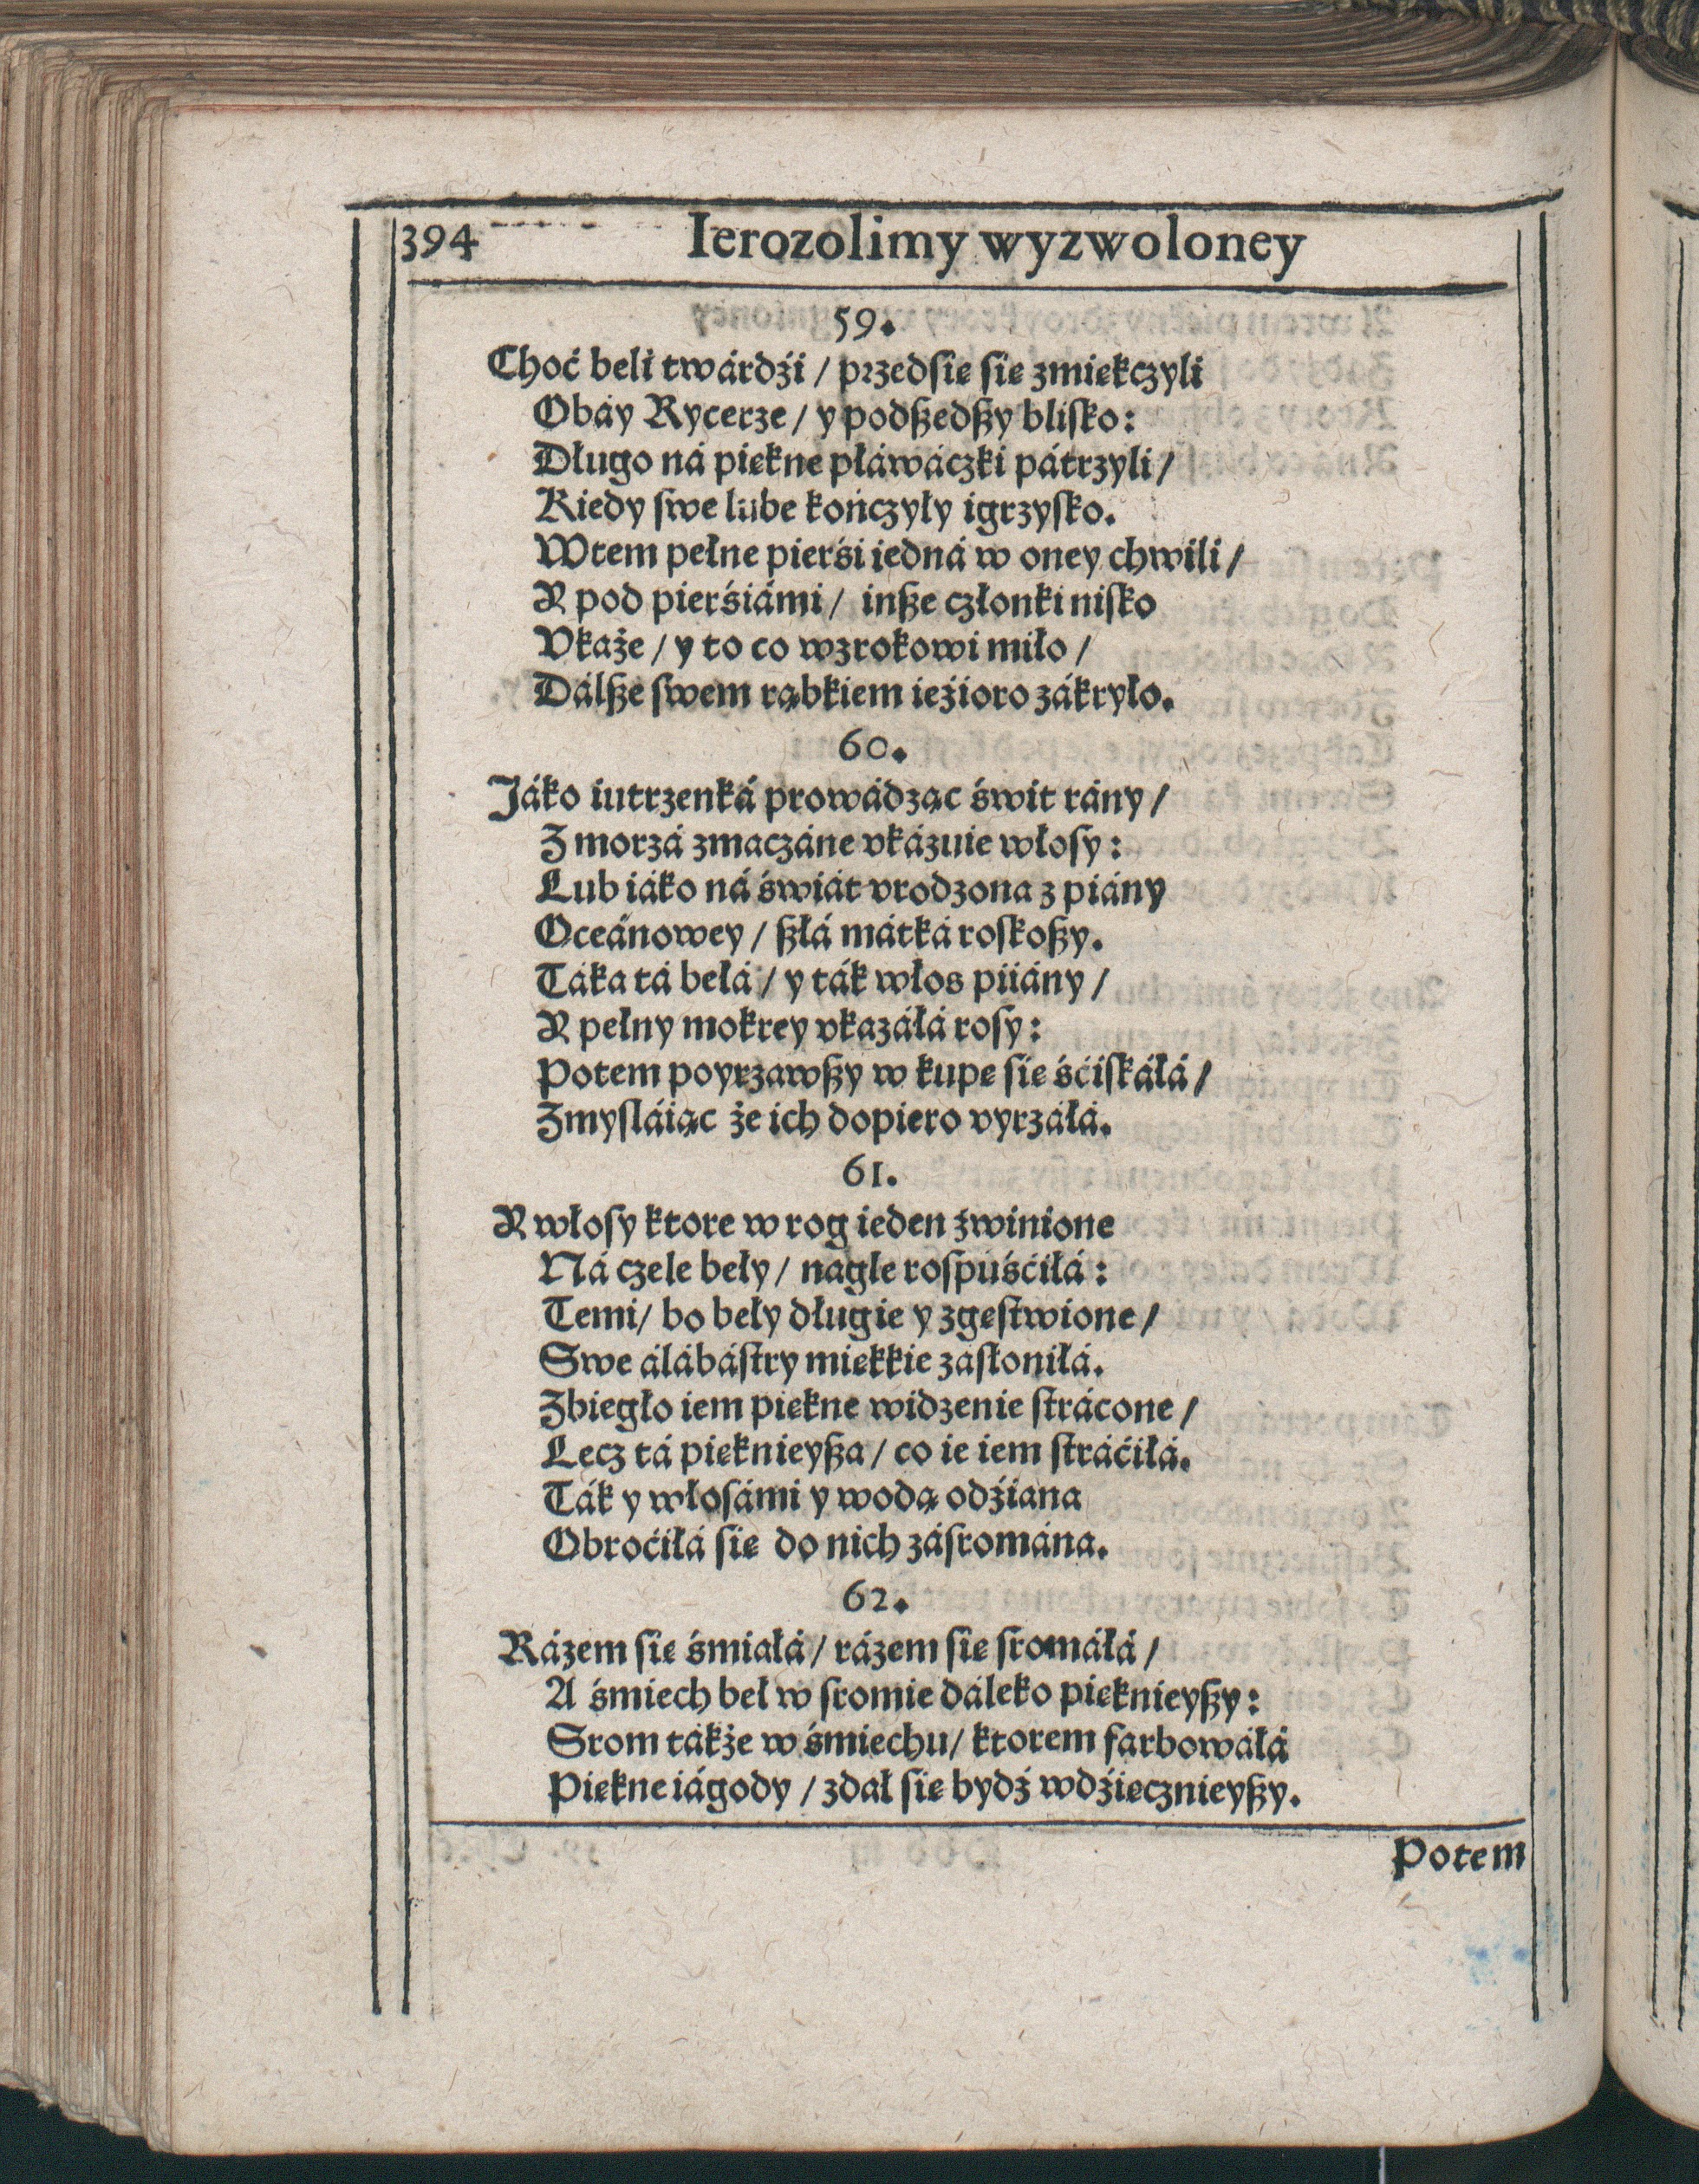 394 Ierozolimy wyzwoloney
59.
Choć beli twárdźi / przedſie ſie zmiękczyli
Obáy Rycerze / y podſzedſzy bliſko:
Długo ná piękne pławáczki pátrzyli /
Kiedy ſwe lube kończyły igrzyſko.
Wtem pełne pierśi iedná w oney chwili /
Y pod pierśiámi / inſze członki niſko
Vkaże / y to co wzrokowi miło /
Dálſze ſwem rąbkiem ieźioro zákryło.
60.
Jáko iutrzenká prowádząc świt rány /
Z morzá zmaczáne vkázuie włoſy:
Lub iáko ná świát vrodzona z piány
Oceánowey / ſzłá mátká roſkoſzy.
Táka tá bełá / y ták włos piiány /
Y pełny mokrey vkazáłá roſy:
Potem poyrzawſzy w kupę ſie śćiſkáłá /
Zmyſláiąc że ich dopiero vyrzáłá.
61.
Y włoſy ktore w rog ieden zwinione
Ná czele beły / nagle roſpuśćiłá:
Temi / bo beły długie y zgęſtwione /
Swe álábáſtry miękkie záſłoniłá.
Zbiegło iem piękne widzenie ſtrácone /
Lecz tá pięknieyſza / co ie iem ſtráćiłá.
Ták y włoſámi y wodą odźiana
Obroćiłá ſie do nich záſromána.
62.
Rázem ſie śmiałá / rázem ſie ſromáłá /
A śmiech beł w ſromie dáleko pięknieyſzy:
Srom tákże w śmiechu / ktorem farbowáłá
Piękne iágody / zdał ſie bydź wdźięcznieyſzy.
Potem